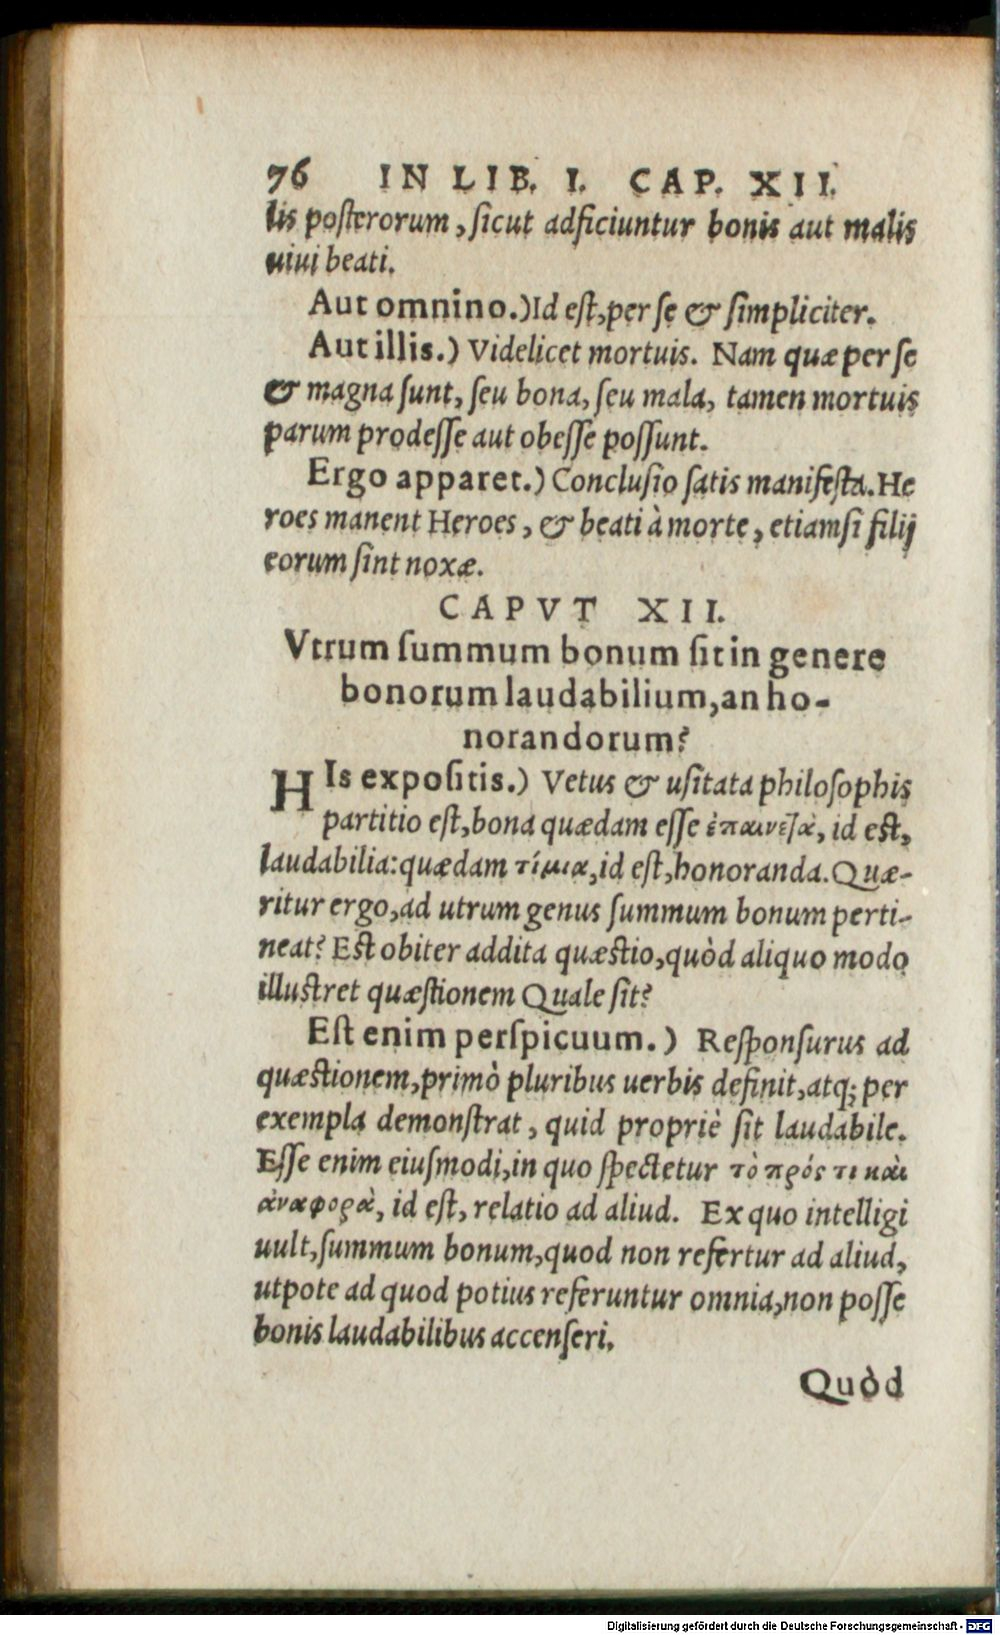 76 IN LIB. I. CAP. XII.
lis posterorum, sicut adficiuntur bonis aut malis
uiui beati.
Aut omnino.) Id est, per se & simpliciter.
Aut illis.) Videlicet mortuis. Nam quæ per se
& magna sunt, seu bona, seu mala, tamen mortuis
parum prodesse aut obesse possunt.
Ergo apparet.) Conclusio satis manifesta. He
roes manent Heroes, & beati à morte, etiamsi filij
eorum sint noxæ.
CAPVT XII.
Vtrum summum bonum sit in genere
bonorum laudabilium, an ho-
norandorum?
HIs expositis.) Vetus & usitata philosophis
partitio est, bona quædam esse ἐπαινετὰ, id est,
laudabilia: quædam τίμια, id est, honoranda. Quæ-
ritur ergo, ad utrum genus summum bonum perti-
neat? Est obiter addita quæstio, quòd aliquo modo
illustret quæstionem Quale sit?
Est enim perspicuum.) Responsurus ad
quæstionem, primò pluribus uerbis definit, atq; per
exempla demonstrat, quid propriè sit laudabile.
Esse enim eiusmodi, in quo spectetur τὸ πρός τι καὶ
ἀναφορὰ, id est, relatio ad aliud. Ex quo intelligi
uult, summum bonum, quod non refertur ad aliud,
utpote ad quod potius referuntur omnia, non posse
bonis laudabilibus accenseri.
Quòd
Digitalisierung gefördert durch die Deutsche Forschungsgemeinschaft - DFG